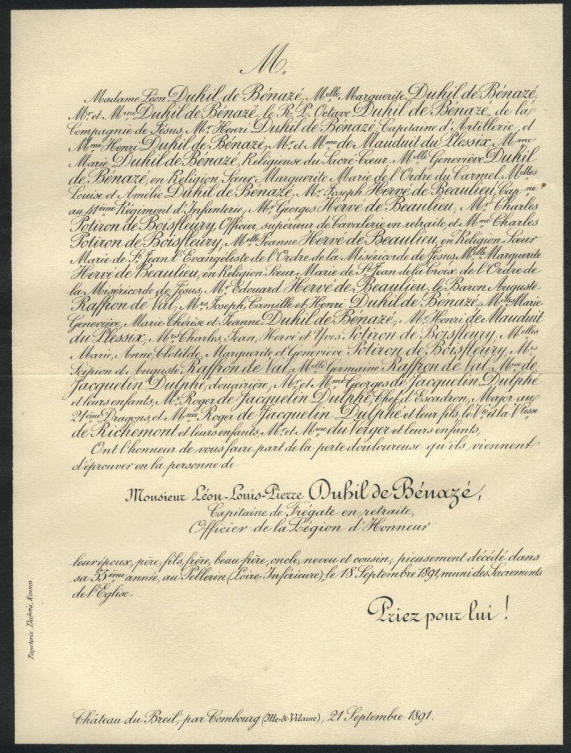 M.
Madame Léon Duhil de Bénazé, Melle Marguerite Duhil de Bénazé,
Mr et Mme Duhil de Bénazé, le R. P. Octave Duhil de Bénazé, de la
Compagnie de Jésus, Mr Henri Duhil de Bénazé, Capitaine d'Artillerie, et
Mme Henri Duhil de Bénazé, Mr et Mme de Mauduit du Plessix, Mme
Marie Duhil de Bénazé, Religieuse du Sacré-Cœur, Melle Geneviève Duhil
de Bénazé, en Religion Sœur Marguerite Marie de l'Ordre du Carmel, Melles
Louise et Amélie Duhil de Bénazé, Mr Joseph Hervé de Beaulieu, Capne
au 41ème Régiment d'Infanterie, Mr Georges Hervé de Beaulieu, Mr Charles
Potiron de Boisfleury, Officier supérieur de cavalerie en retraite, et Mme Charles
Potiron de Boisfleury, Melle Jeanne Hervé de Beaulieu, en Religion Sœur
Marie de St Jean l'Evangéliste de l'Ordre de la Miséricorde de Jésus, Melle Marguerite
Hervé de Beaulieu, en Religion Sœur Marie de St Jean de la Croix de l'Ordre de
la Miséricorde de Jésus, Mr Edouard Hervé de Beaulieu, le Baron Auguste
Raffron de Val, Mrs Joseph, Camille et Henri Duhil de Bénazé, Melles Marie
Geneviève, Marie-Thérèse et Jeanne Duhil de Bénazé, Mr Henri de Mauduit
du Plessix, Mrs Charles, Jean, Hervé et Yves Potiron de Boisfleury, Melles
Marie, Anne, Clotilde, Marguerite et Geneviève Potiron de Boisfleury, Mrs
Scipion et Auguste Raffron de Val, Melle Germaine Raffron de Val, Mme de
Jacquelin Dulphé, douairière, Mr et Mme Georges de Jacquelin Dulphé
et leurs enfants, Mr Roger de Jacquelin Dulphé, Chef d'Escadron, Major au
21ème Dragons, et Mme Roger de Jacquelin Dulphé et leur fils, le Vte et la Vtesse
de Richemont et leurs enfants, Mr et Mme du Verger et leurs enfants,
Ont l'honneur de vous faire part de la perte douloureuse qu'ils viennent
d'éprouver en la personne de
Monsieur Léon-Louis-Pierre Duhil de Bénazé,
Capitaine de Frégate en retraite,
Officier de la Légion d'Honneur
leur époux, père, fils, frère, beau-frère, oncle, neveu et cousin, pieusement décédé dans
sa 55ème année, au Pellerin (Loire-Inférieure), le 18 Septembre 1891, muni des Sacrements
de l'Eglise.
Priez pour lui !
Château du Breil, par Combourg (Ille-&-Vilaine), 21 Septembre 1891.
Papeterie